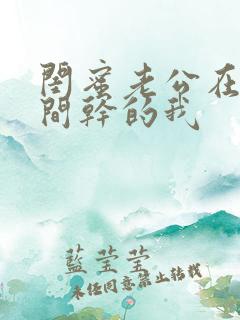 閨蜜老公在
間幹的我
藍莹莹
未经同意禁止转载